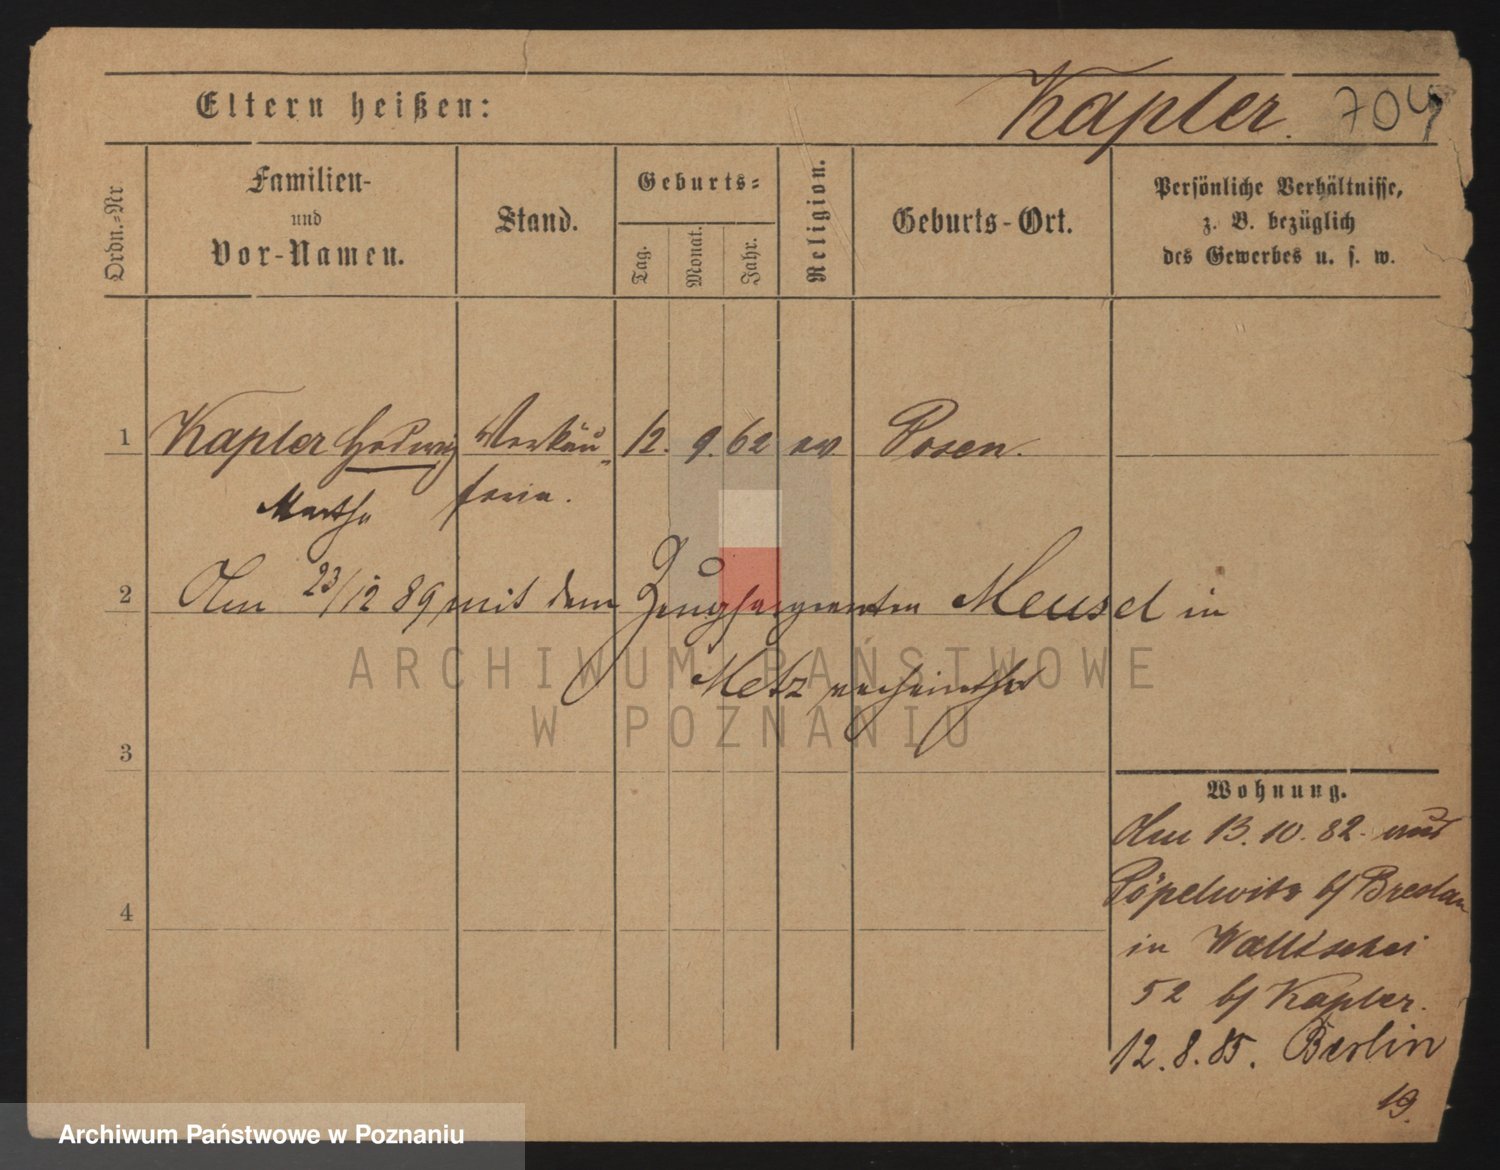 Eltern heißen: Kapler. 704
Ordn.-Nr
Familien-
und
Vor-Namen.
Stand.
Geburts-
Tag.
Monat.
Jahr.
Religion.
Geburts-Ort.
Persönliche Verhältnisse,
z. B. bezüglich
des Gewerbes u. s. w.
1 Kapler Hedwig Verkäu- 12. 9. 62 ev Posen.
Martha ferin.
2 Am 23/12 89 mit dem Zeugsergeanten Meusel in
Metz verheirathet
ARCHIWUM PAŃSTWOWE
W POZNANIU
3
4
Wohnung.
Am 13. 10. 82. aus
Pöpelwitz b/ Breslau
in Wallischei
52 b/ Kapler.
12. 8. 85. Berlin
19.
Archiwum Państwowe w Poznaniu